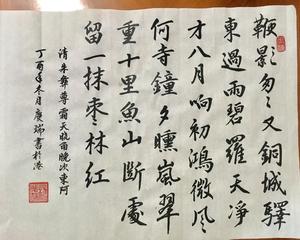 鞭影匆々又銅城驛
東過雨碧羅天淨
才八月响初鴻微風
何寺鐘夕曛嵐翠
重十里魚山斷處
留一抹棗林紅
清朱彝尊霜天曉角晚次東阿
丁酉年冬月廣瑞書於港